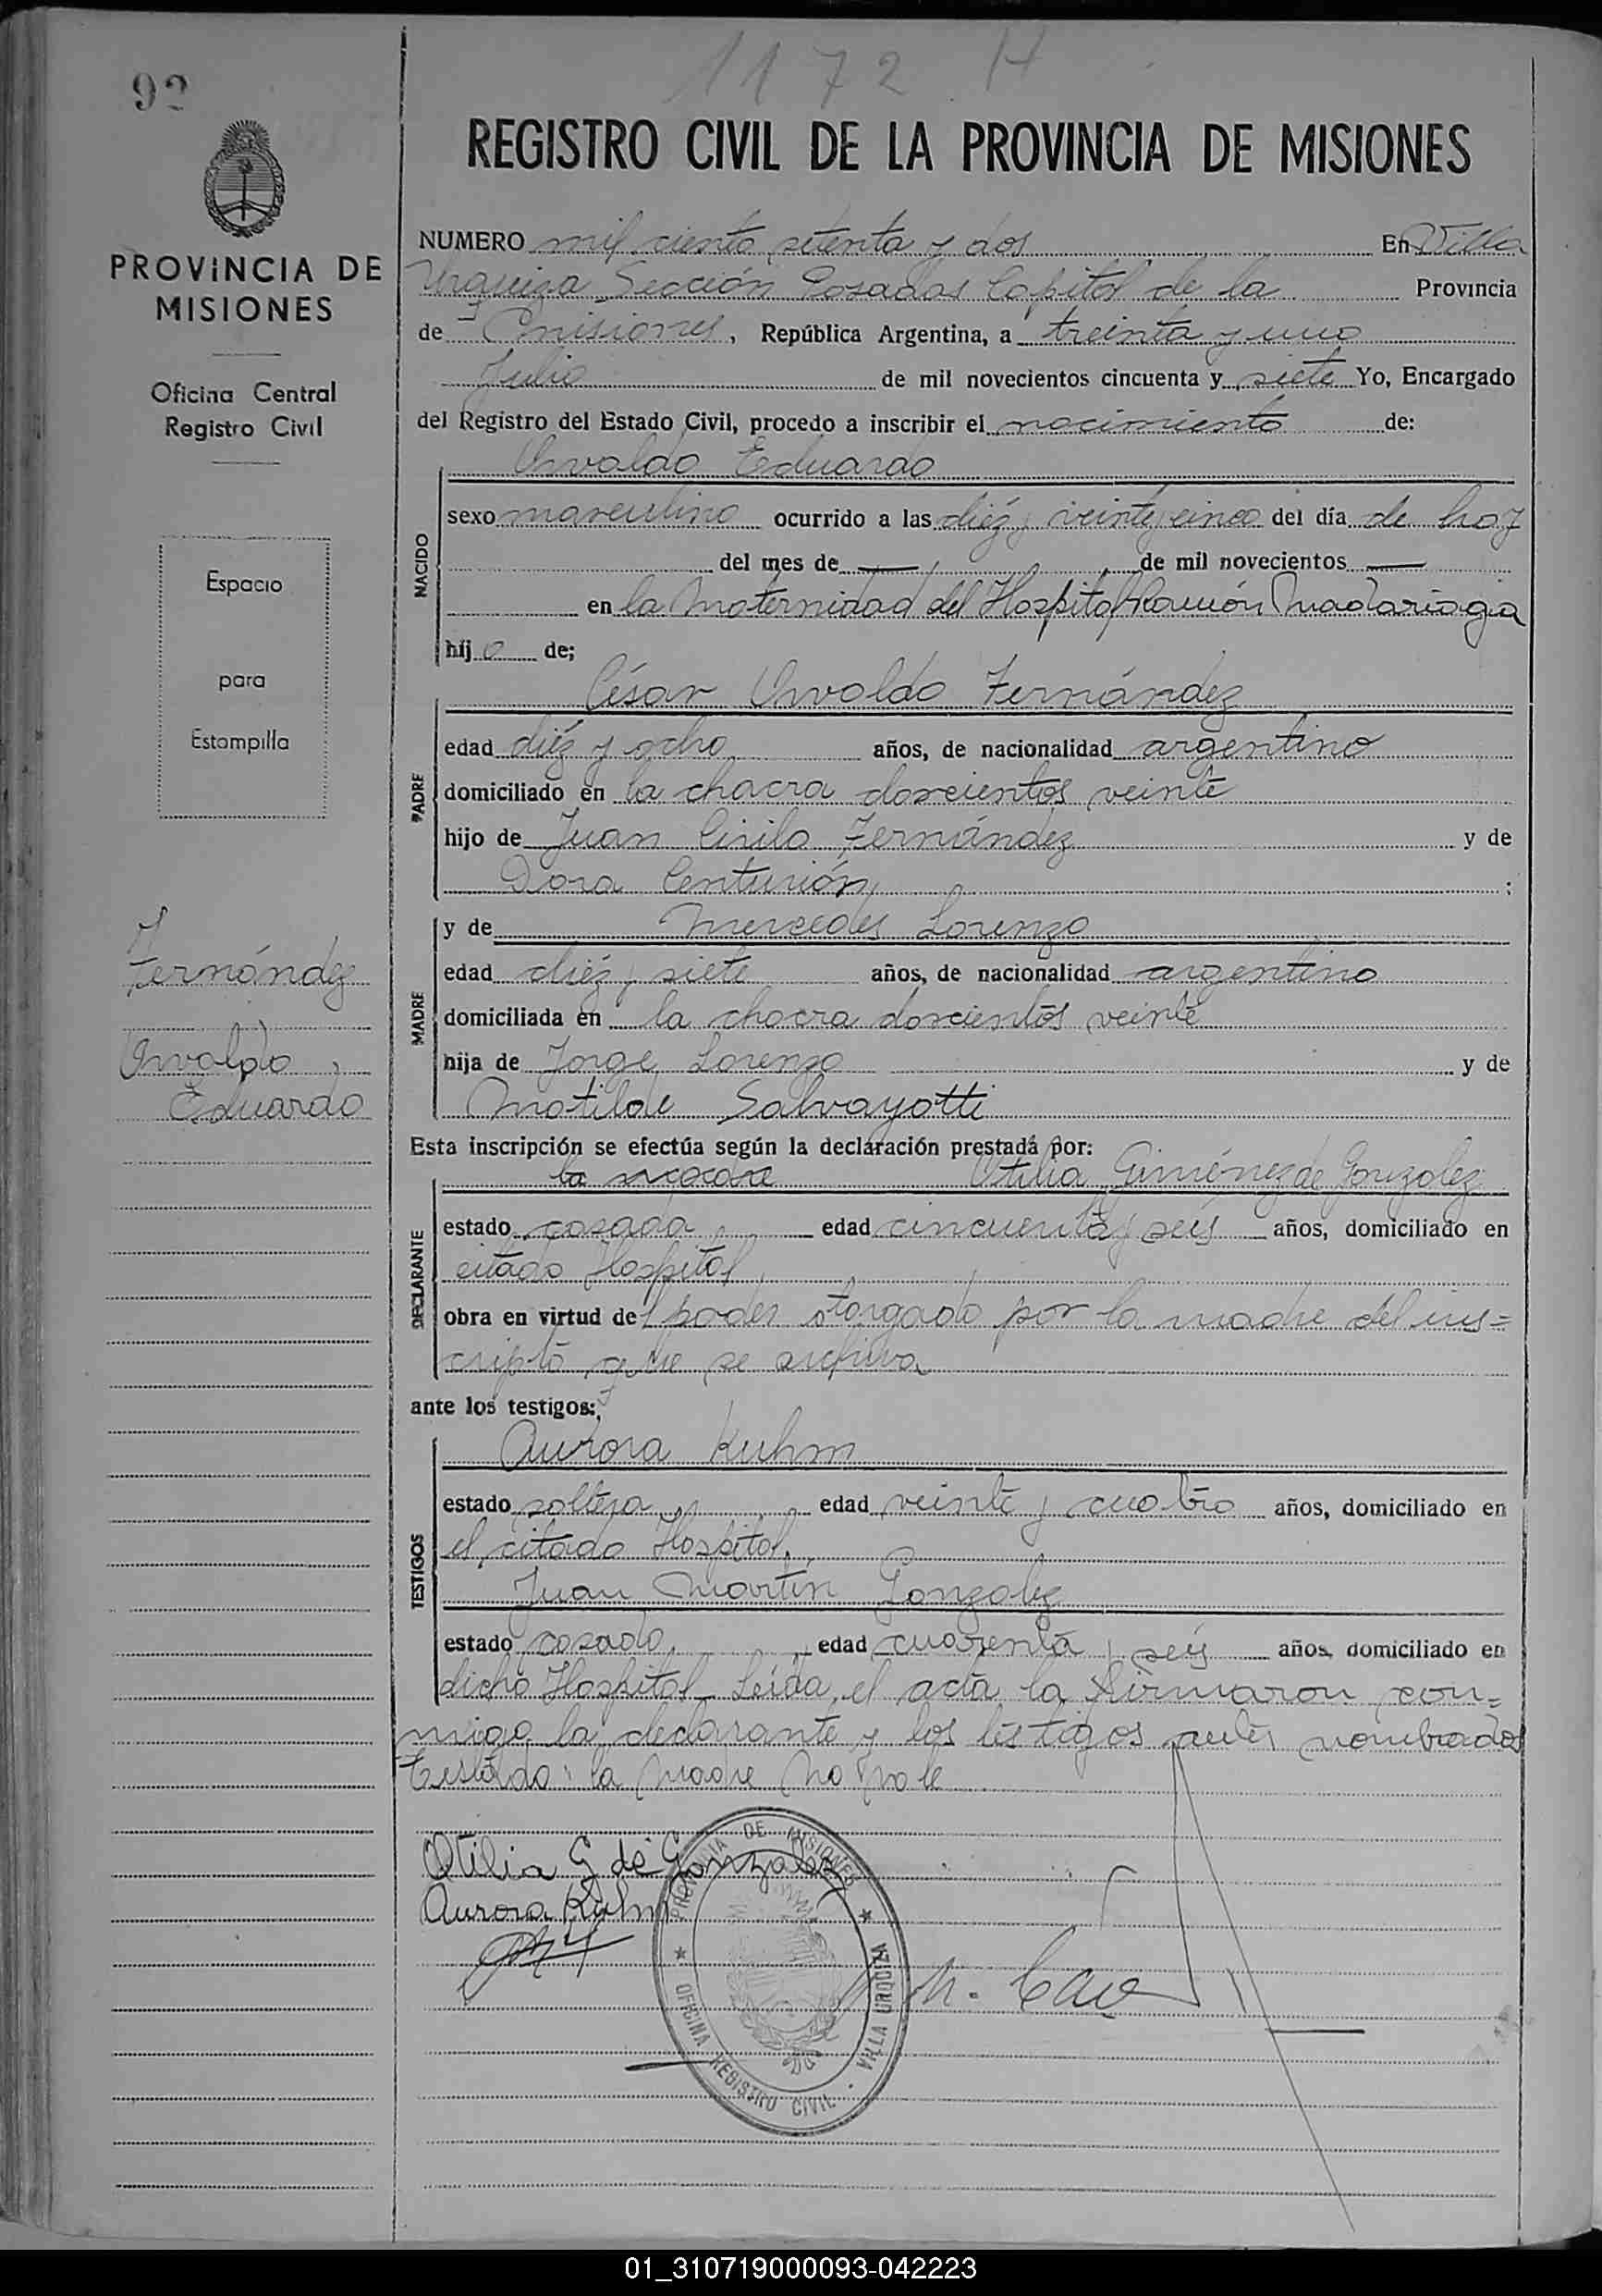 92
1172 H
REGISTRO CIVIL DE LA PROVINCIA DE MISIONES
PROVINCIA DE
MISIONES
Oficina Central
Registro Civil
Espacio
para
Estampilla
Fernández
Osvaldo
Eduardo
NUMERO mil ciento setenta y dos En Villa
Urquiza Sección Posadas Capital de la Provincia
de Misiones, República Argentina, a treinta y uno
Julio de mil novecientos cincuenta y siete Yo, Encargado
del Registro del Estado Civil, procedo a inscribir el nacimiento de:
Osvaldo Eduardo
NACIDO
sexo masculino ocurrido a las diéz y veinte y cinco del día de hoy
del mes de — de mil novecientos —
en la Maternidad del Hospital Ramón Madariaga
hijo de;
César Osvaldo Fernández
PADRE
edad diéz y ocho años, de nacionalidad argentino
domiciliado en la chacra doscientos veinte
hijo de Juan Cirilo Fernández y de
Dora Centurión ;
MADRE
y de Mercedes Lorenzo
edad diéz y siete años, de nacionalidad argentina
domiciliada en la chacra doscientos veinte
hija de Jorge Lorenzo y de
Matilde Salvayotti
Esta inscripción se efectúa según la declaración prestada por:
la madre Otilia Giménez de Gonzalez
DECLARANTE
estado casada edad cincuenta y seis años, domiciliado en
citado Hospital
obra en virtud del poder otorgado por la madre del ins=
cripto que se archiva
ante los testigos:
Aurora Kuhm
TESTIGOS
estado soltera edad veinte y cuatro años, domiciliado en
el citado Hospital
Juan Martín Gonzalez
estado casado edad cuarenta y seis años, domiciliado en
dicho Hospital Leída el acta la firmaron con=
migo la declarante y los testigos antes nombrados
Testado: la madre no vale
Otilia G de Gonzalez
Aurora Kuhm
PROVINCIA DE MISIONES
OFICINA REGISTRO CIVIL - VILLA URQUIZA
01_310719000093-042223